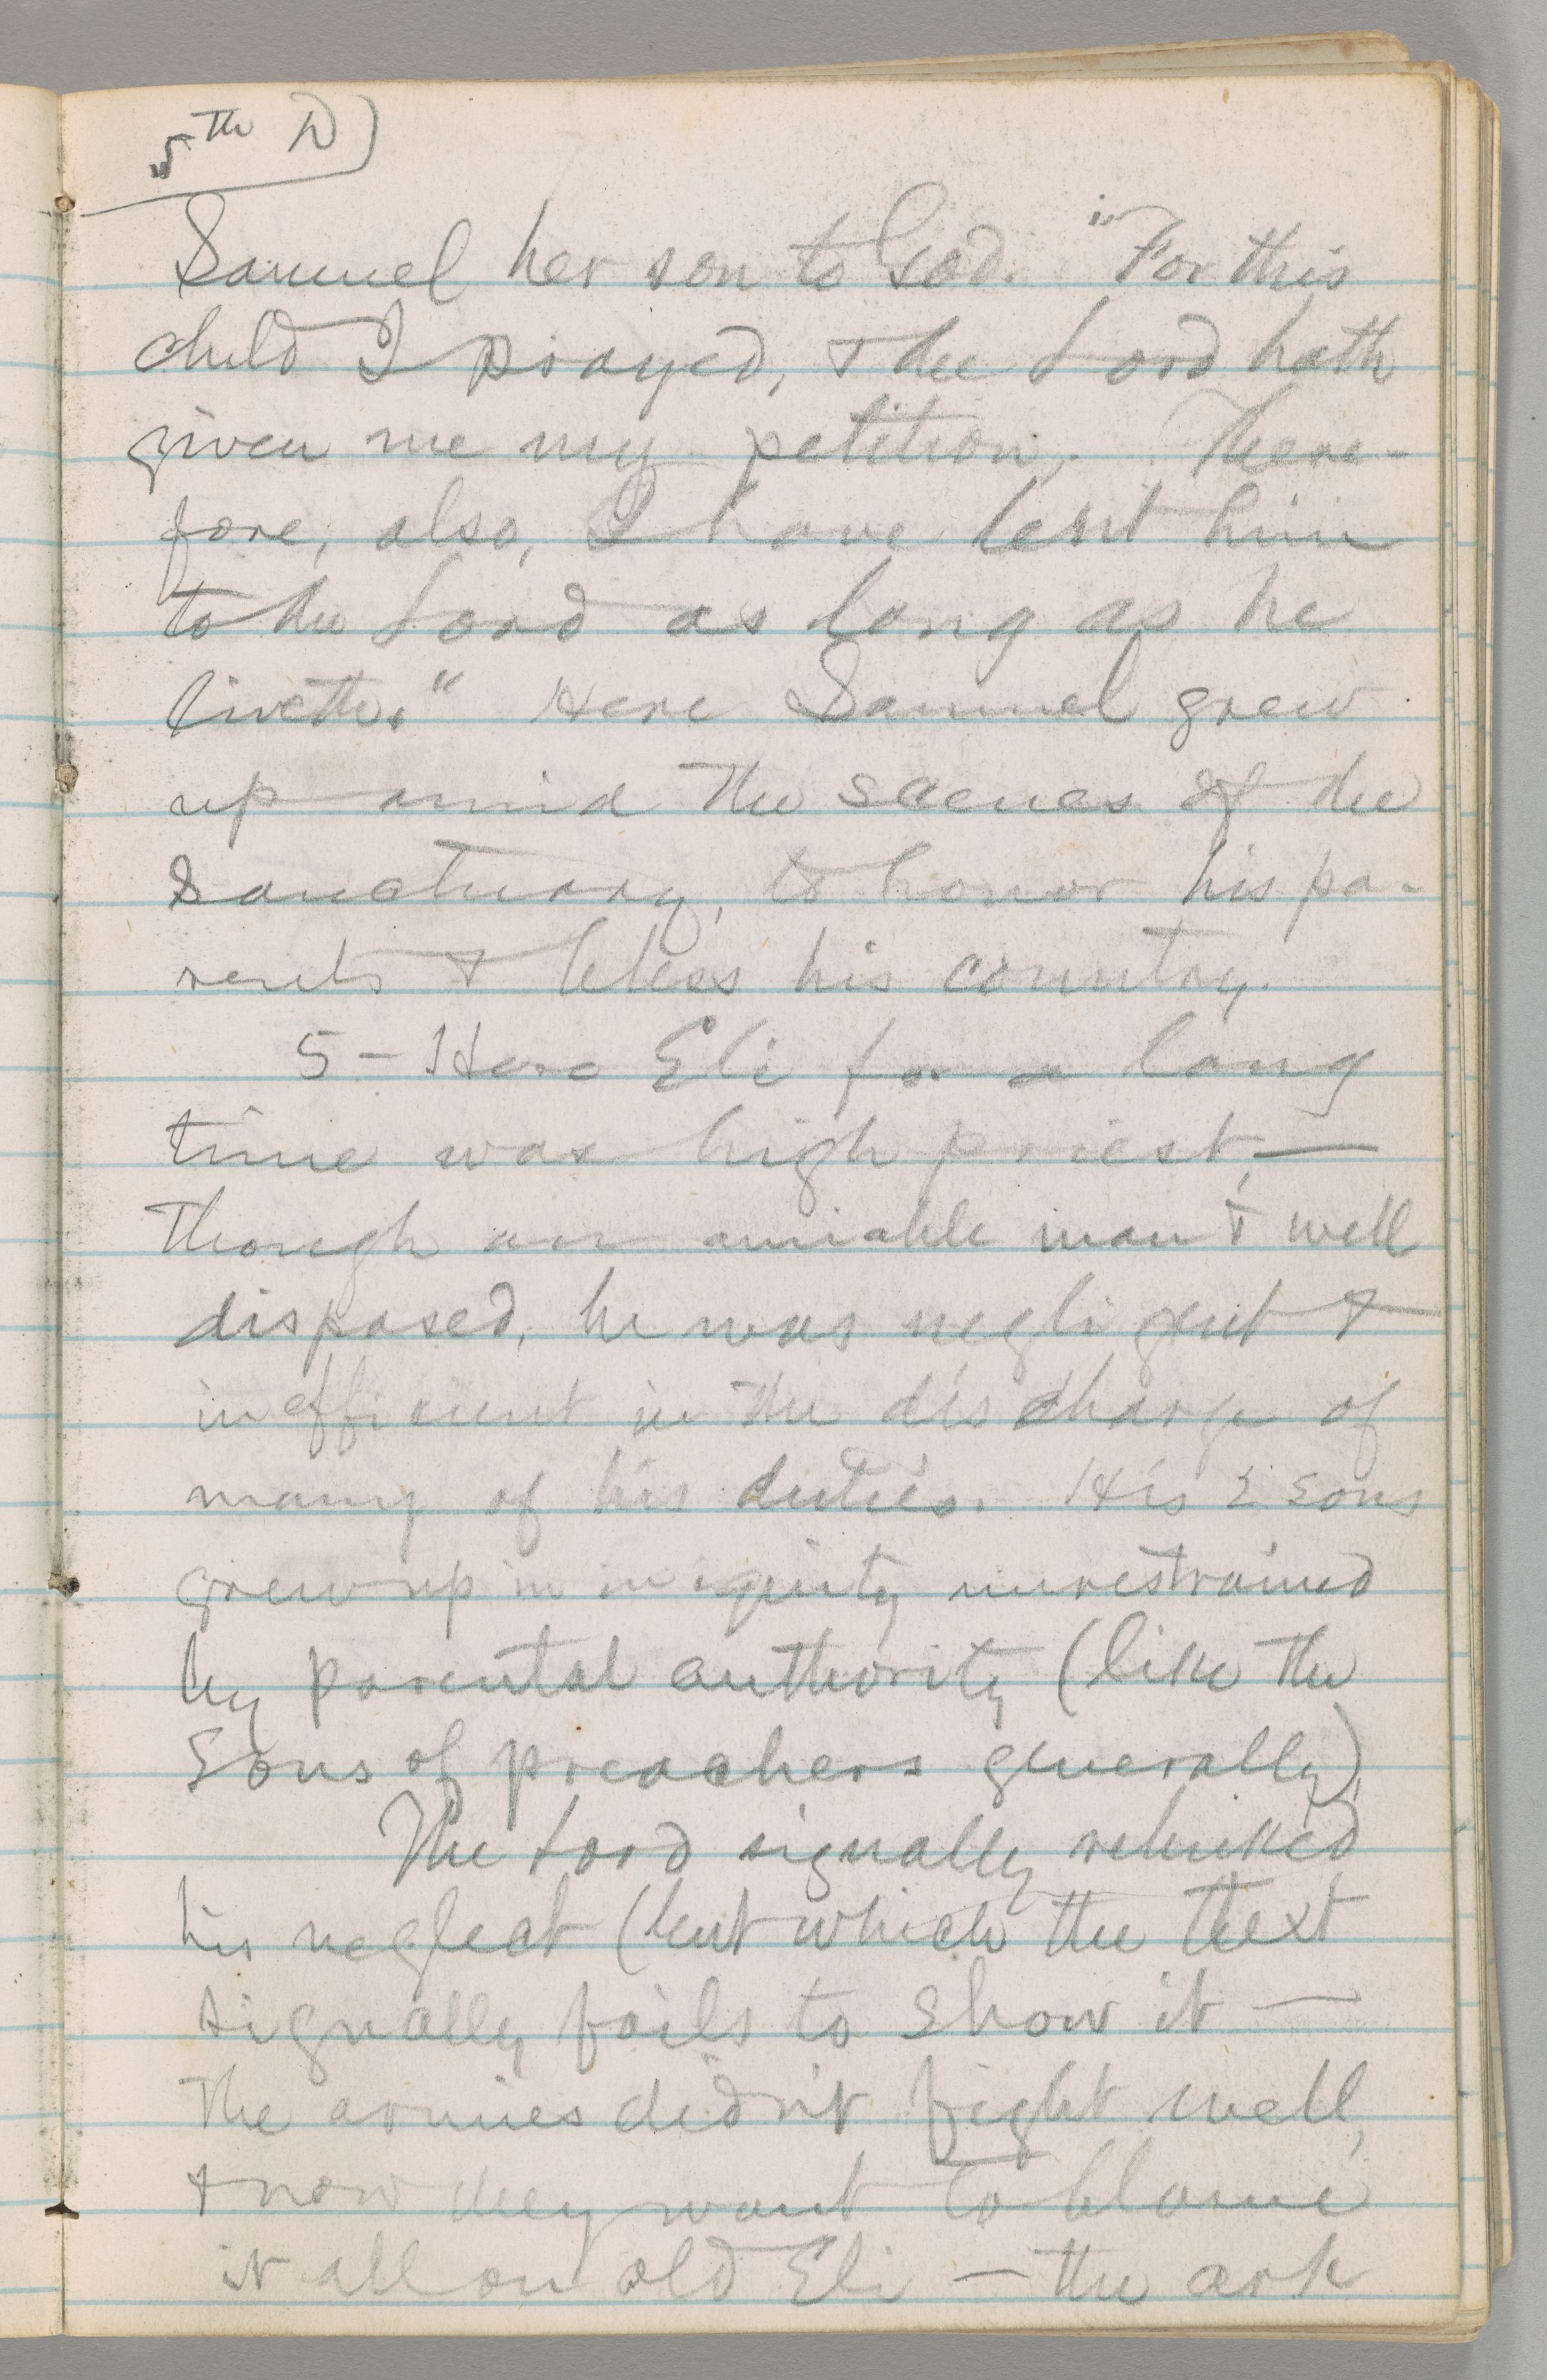 5th D)
Samuel her son to God. "For this
child I prayed, & the Lord hath
given me my petition, There-
fore, also, I have lent him
to the Lord as long as he
liveth." Here Samuel grew
up amid the scenes of the
Sanctuary, to honor his pa-
rents & bless his country.
5 - Here Eli for a long
time was high priest, —
Though an amiable man & well
disposed, he was negligent &
inefficient in the discharge of
many of his duties. His 2 sons
grew up in iniquity unrestrained
by parental authority (like the
Sons of preachers generally)
The Lord signally rebuked
his neglect (but which the text
signally fails to show it —
The armies didn't fight well,
& now they want to blame
it all on old Eli — the ark